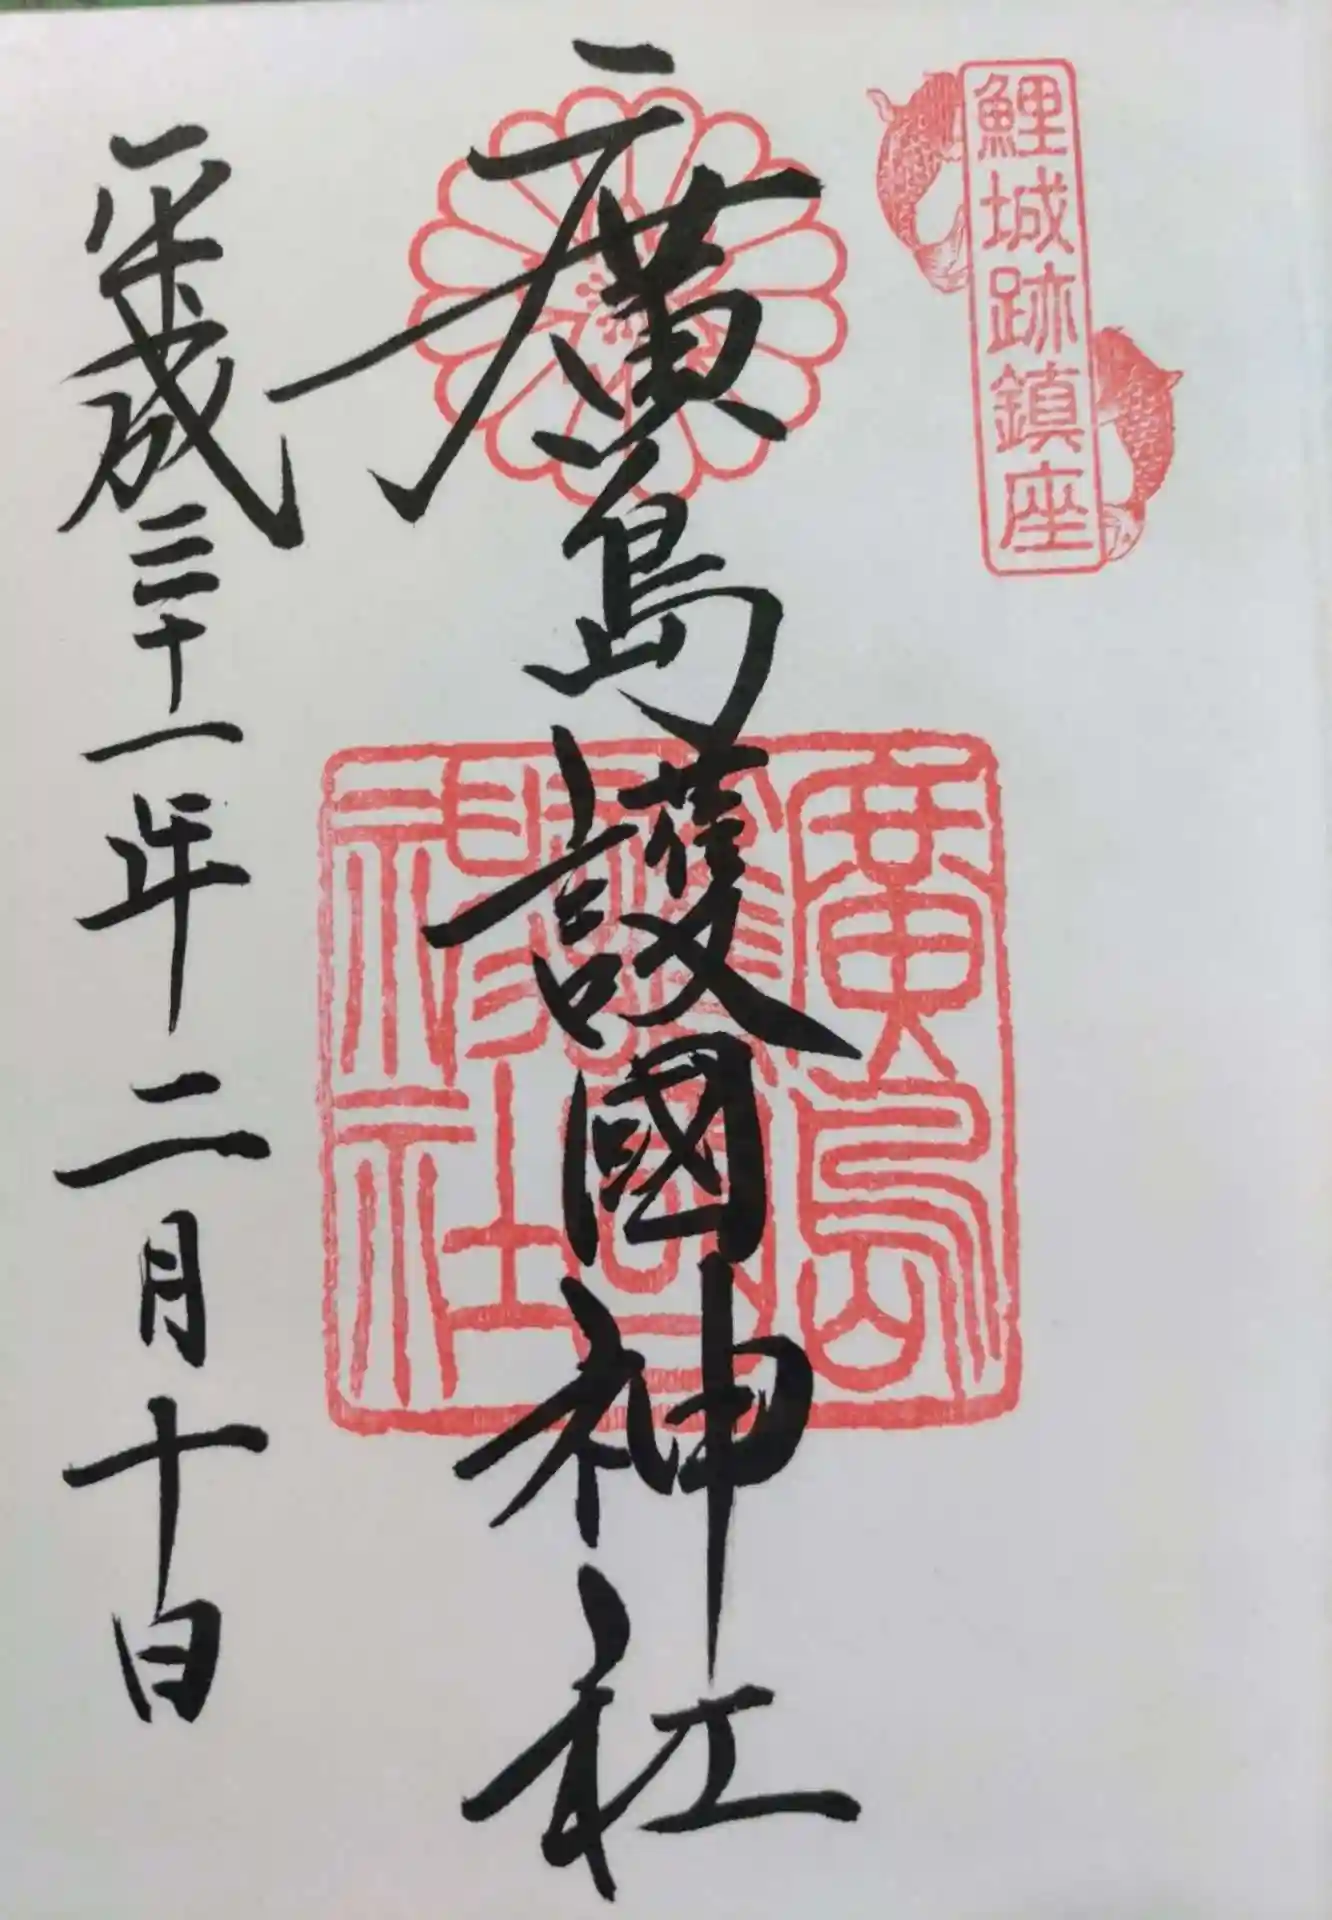 鯉城跡鎮座
廣島護國神社
廣島
護國
神社
平成三十一年二月十日